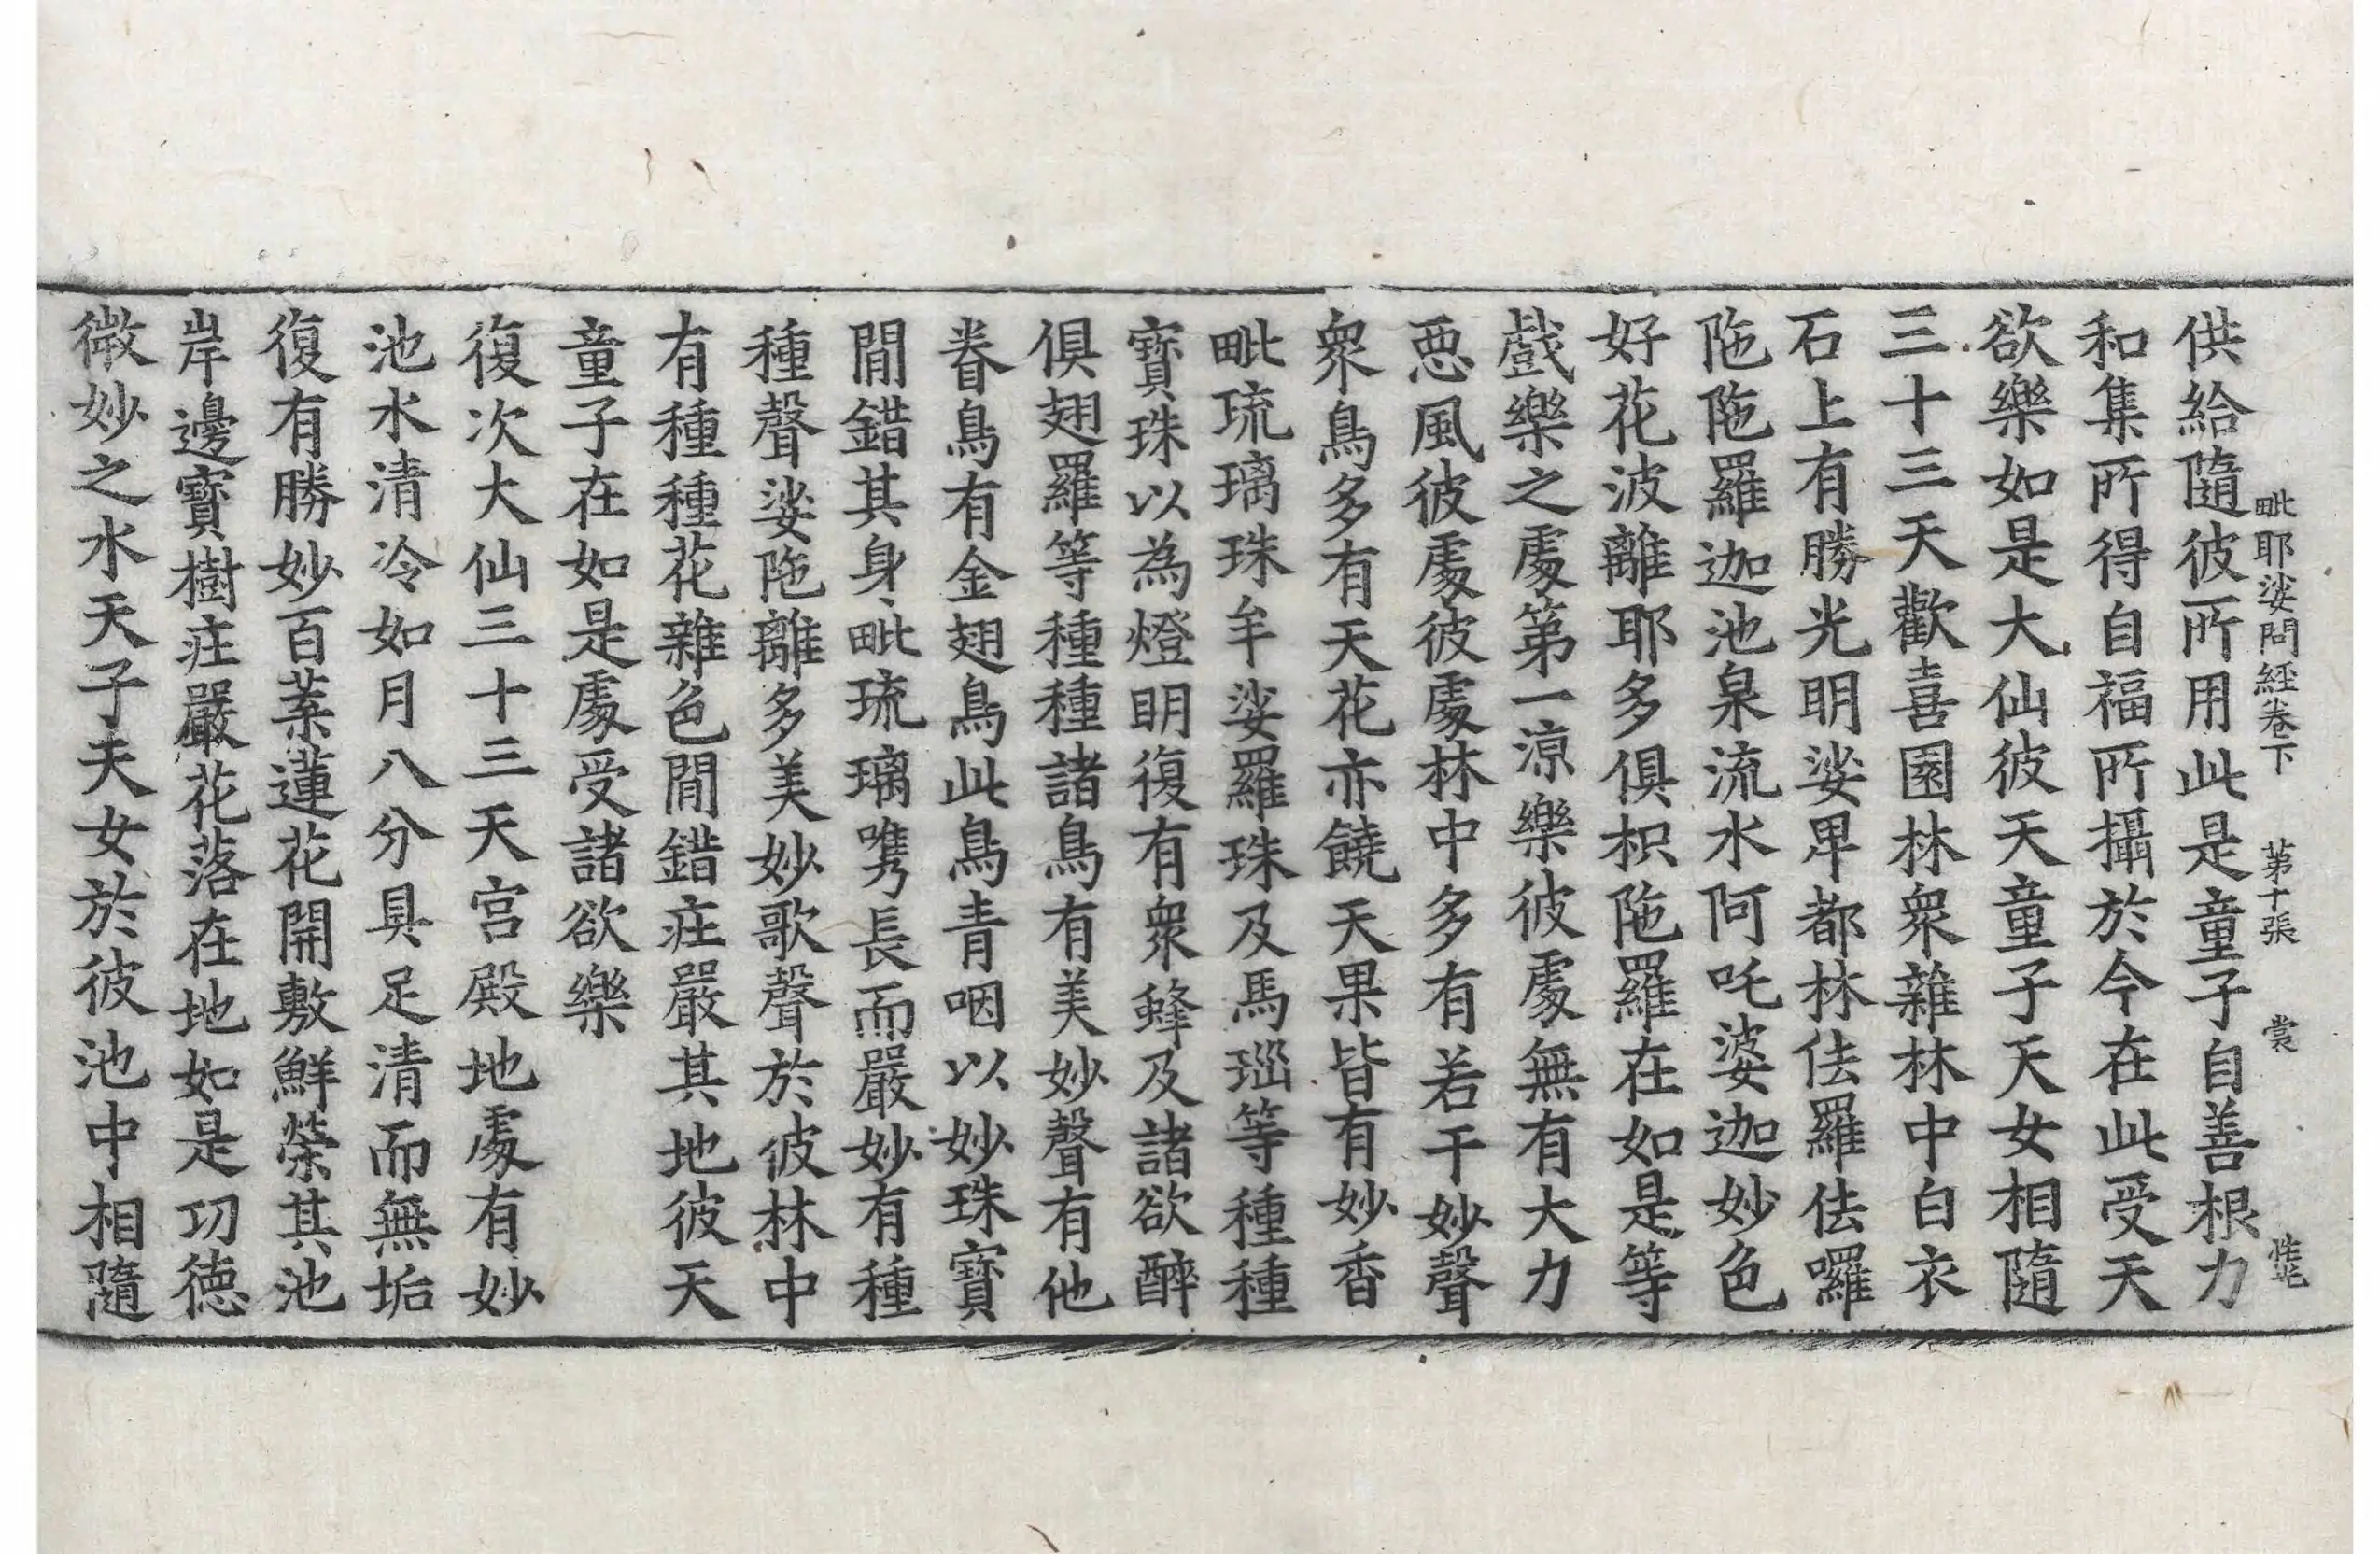 毗耶娑問經卷下 第十張 裳
供給隨彼所用此是童子自善根力
和集所得自福所攝於今在此受天
欲樂如是大仙彼天童子天女相隨
三十三天歡喜園林衆雜林中白衣
石上有勝光明娑卑都林佉羅佉囉
陁陁羅迦池泉流水阿吒婆迦妙色
好花波離耶多俱枳陁羅在如是等
戲樂之處第一涼樂彼處無有大力
惡風彼處彼處林中多有若干妙聲
衆鳥多有天花亦饒天果皆有妙香
毗琉璃珠牟娑羅珠及馬瑙等種種
寶珠以為燈明復有衆蜂及諸欲醉
俱翅羅等種種諸鳥有美妙聲有他
眷鳥有金翅鳥此鳥青咽以妙珠寶
間錯其身毗琉璃嘴長而嚴妙有種
種聲娑陁離多美妙歌聲於彼林中
有種種花雜色間錯莊嚴其地彼天
童子在如是處受諸欲樂
復次大仙三十三天宮殿地處有妙
池水清冷如月八分具足清而無垢
復有勝妙百葉蓮花開敷鮮榮其池
岸邊寶樹莊嚴花落在地如是功德
微妙之水天子天女於彼池中相隨